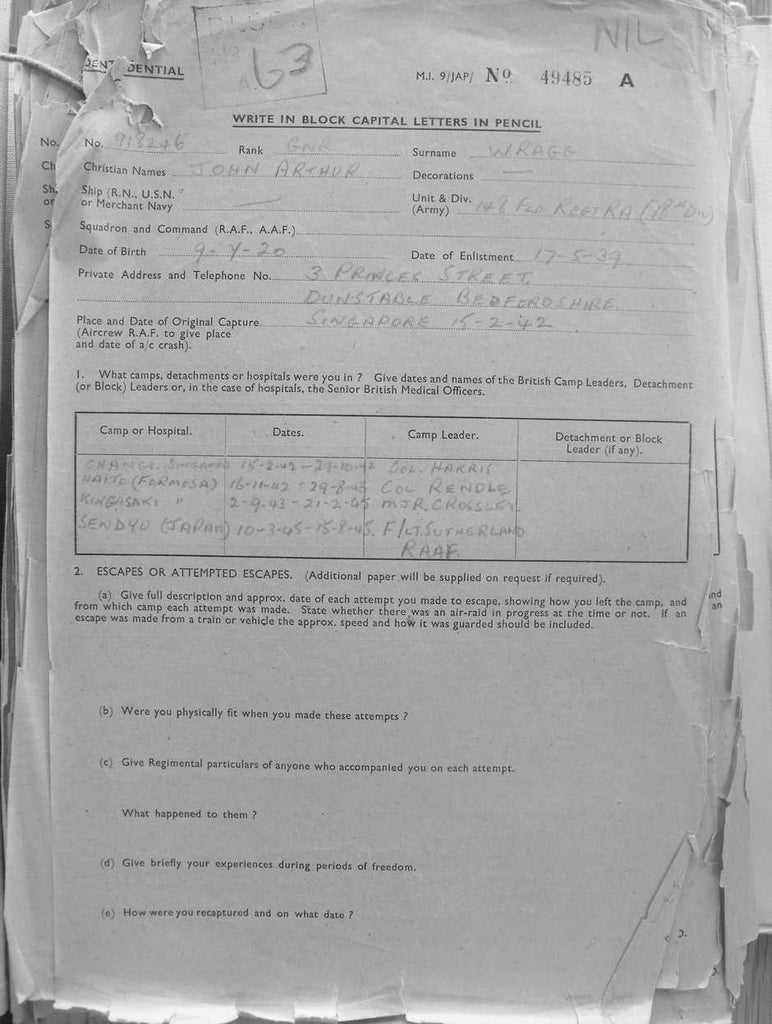 NIL
63
DENTIAL
M.I. 9/JAP/ No 49485 A
WRITE IN BLOCK CAPITAL LETTERS IN PENCIL
No. No. 918246 Rank GNR Surname WRAGG
Ch Christian Names JOHN ARTHUR Decorations —
Sh. Ship (R.N., U.S.N.
or or Merchant Navy — Unit & Div. (Army) 148 FLD REGT RA (18TH DIV)
S Squadron and Command (R.A.F., A.A.F.)
Date of Birth 9-4-20 Date of Enlistment 17-5-39
Private Address and Telephone No. 3 PRINCES STREET
DUNSTABLE BEDFORDSHIRE
Place and Date of Original Capture SINGAPORE 15-2-42
(Aircrew R.A.F. to give place
and date of a/c crash).
1. What camps, detachments or hospitals were you in ? Give dates and names of the British Camp Leaders, Detachment
(or Block) Leaders or, in the case of hospitals, the Senior British Medical Officers.
Camp or Hospital. Dates. Camp Leader. Detachment or Block
Leader (if any).
CHANGI 15-2-42 - 29-10-42 COL. HARRIS
HAITO (FORMOSA) 16-11-42 - 29-8-43 COL RENDLE
KINGASAKI " 2-9-43 - 21-2-45 MJR. CROSSLEY
SENDYU (JAPAN) 10-3-45 - 15-8-45. F/LT. SUTHERLAND
RAAF.
2. ESCAPES OR ATTEMPTED ESCAPES. (Additional paper will be supplied on request if required).
(a) Give full description and approx. date of each attempt you made to escape, showing how you left the camp, and
from which camp each attempt was made. State whether there was an air-raid in progress at the time or not. If an
escape was made from a train or vehicle the approx. speed and how it was guarded should be included.
nd
an
(b) Were you physically fit when you made these attempts ?
(c) Give Regimental particulars of anyone who accompanied you on each attempt.
What happened to them ?
(d) Give briefly your experiences during periods of freedom.
(e) How were you recaptured and on what date ?